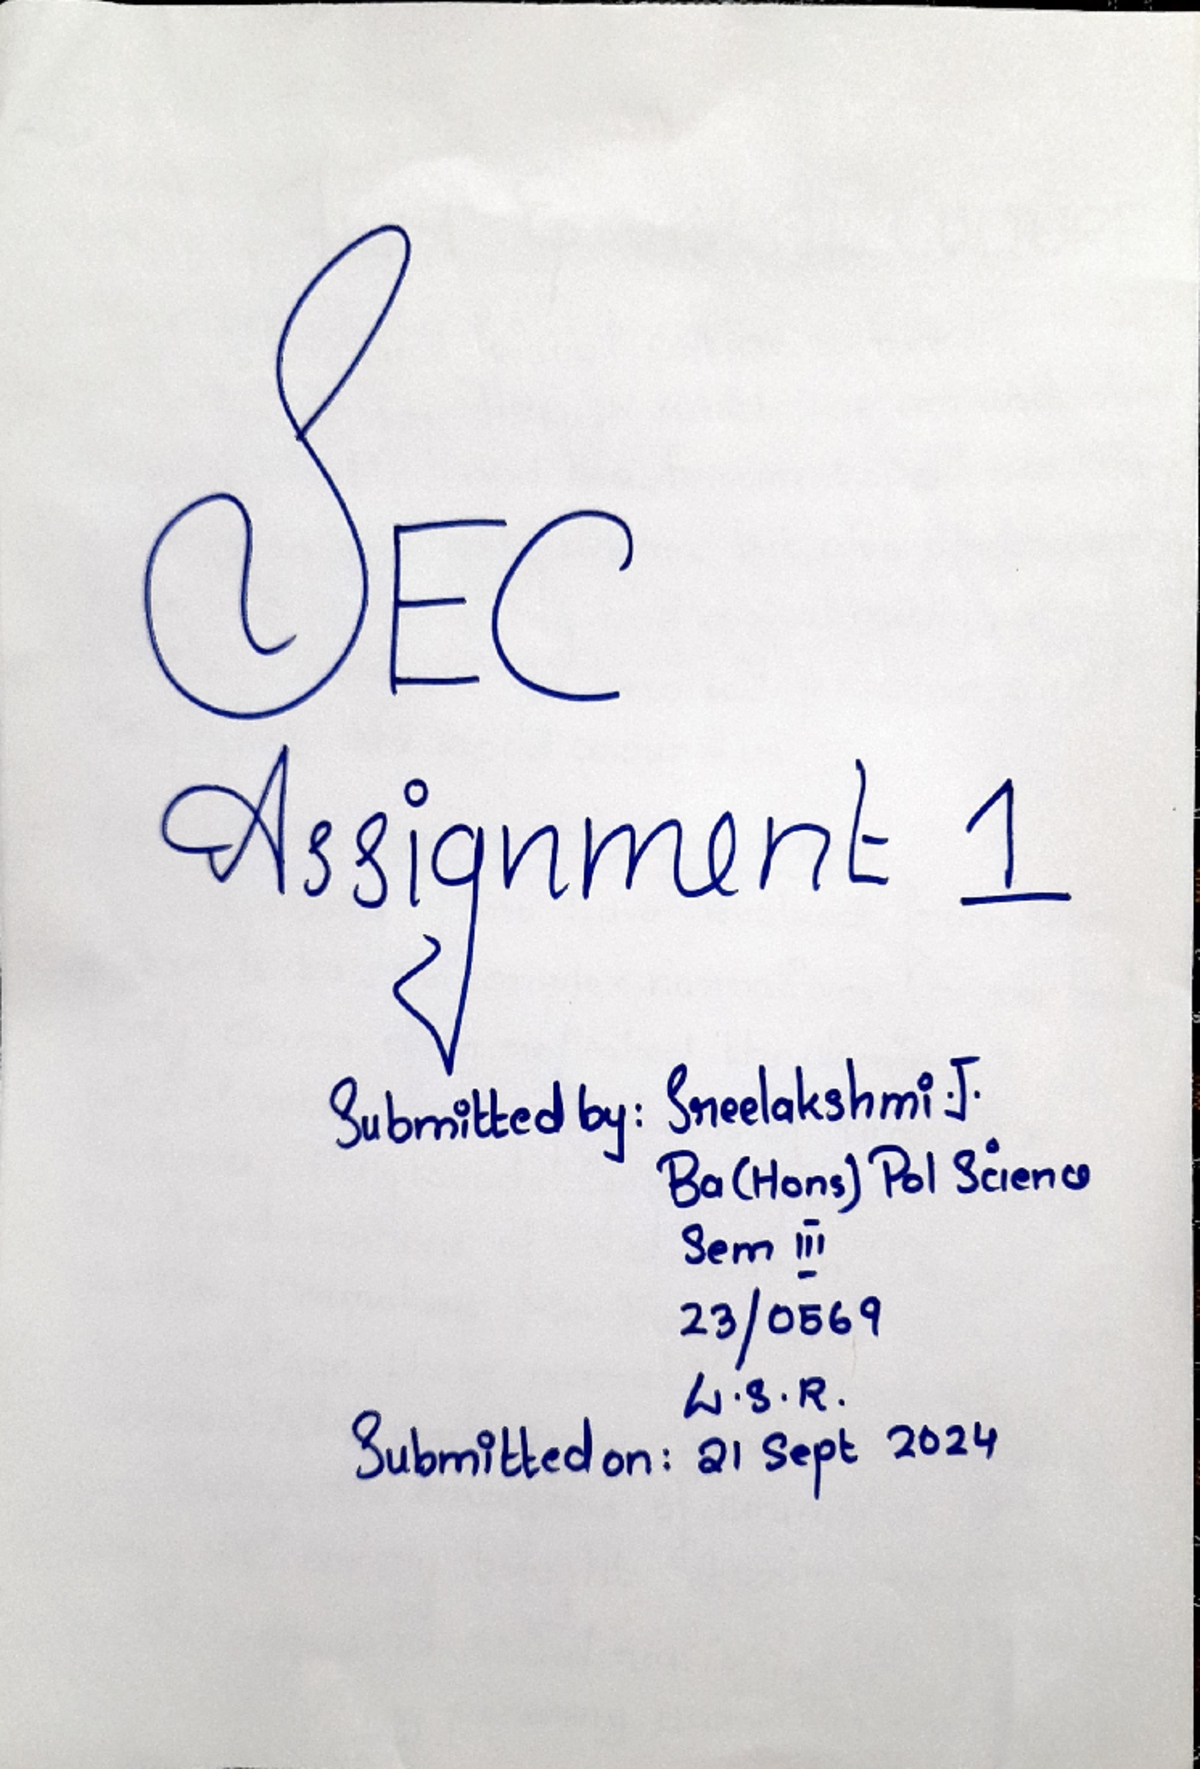 SEC
Assignment 1
Submitted by: Sreelakshmi.J.
Ba (Hons) Pol Science
Sem III
23/0569
L.S.R.
Submitted on: 21 Sept 2024